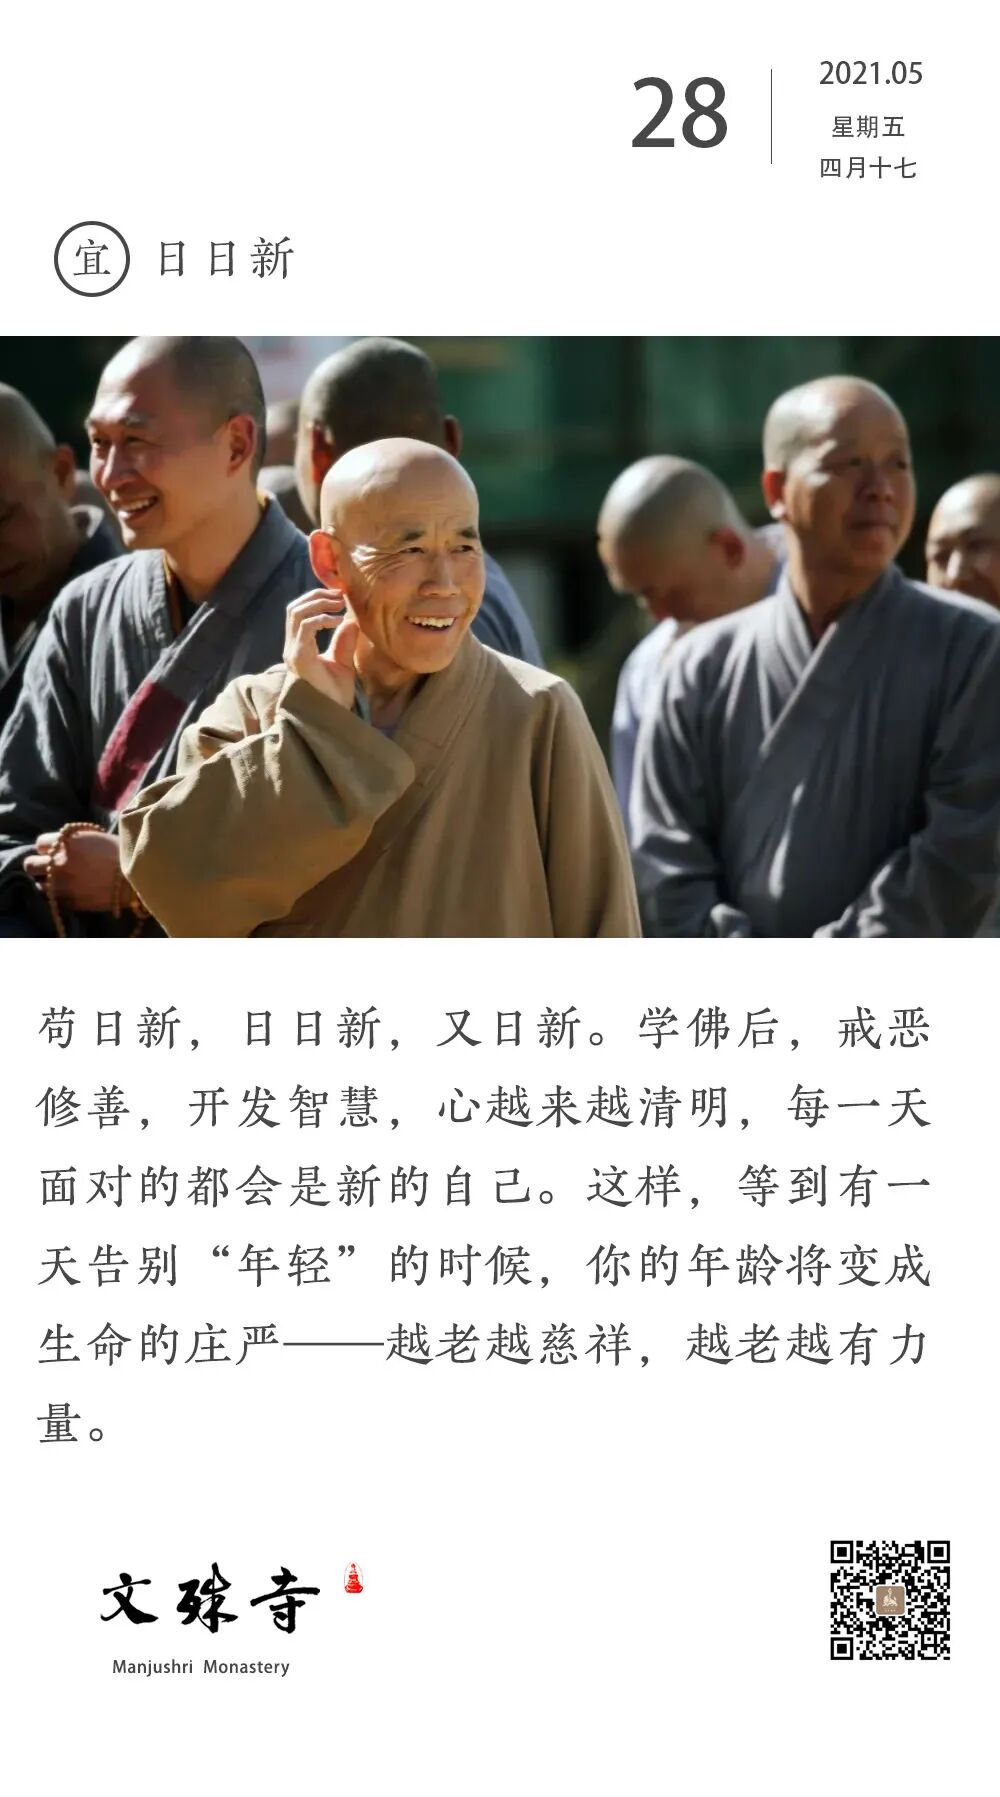 28
2021.05
星期五
四月十七
宜 日日新
苟日新，日日新，又日新。学佛后，戒恶
修善，开发智慧，心越来越清明，每一天
面对的都会是新的自己。这样，等到有一
天告别“年轻”的时候，你的年龄将变成
生命的庄严——越老越慈祥，越老越有力
量。
文殊寺
Manjushri Monastery